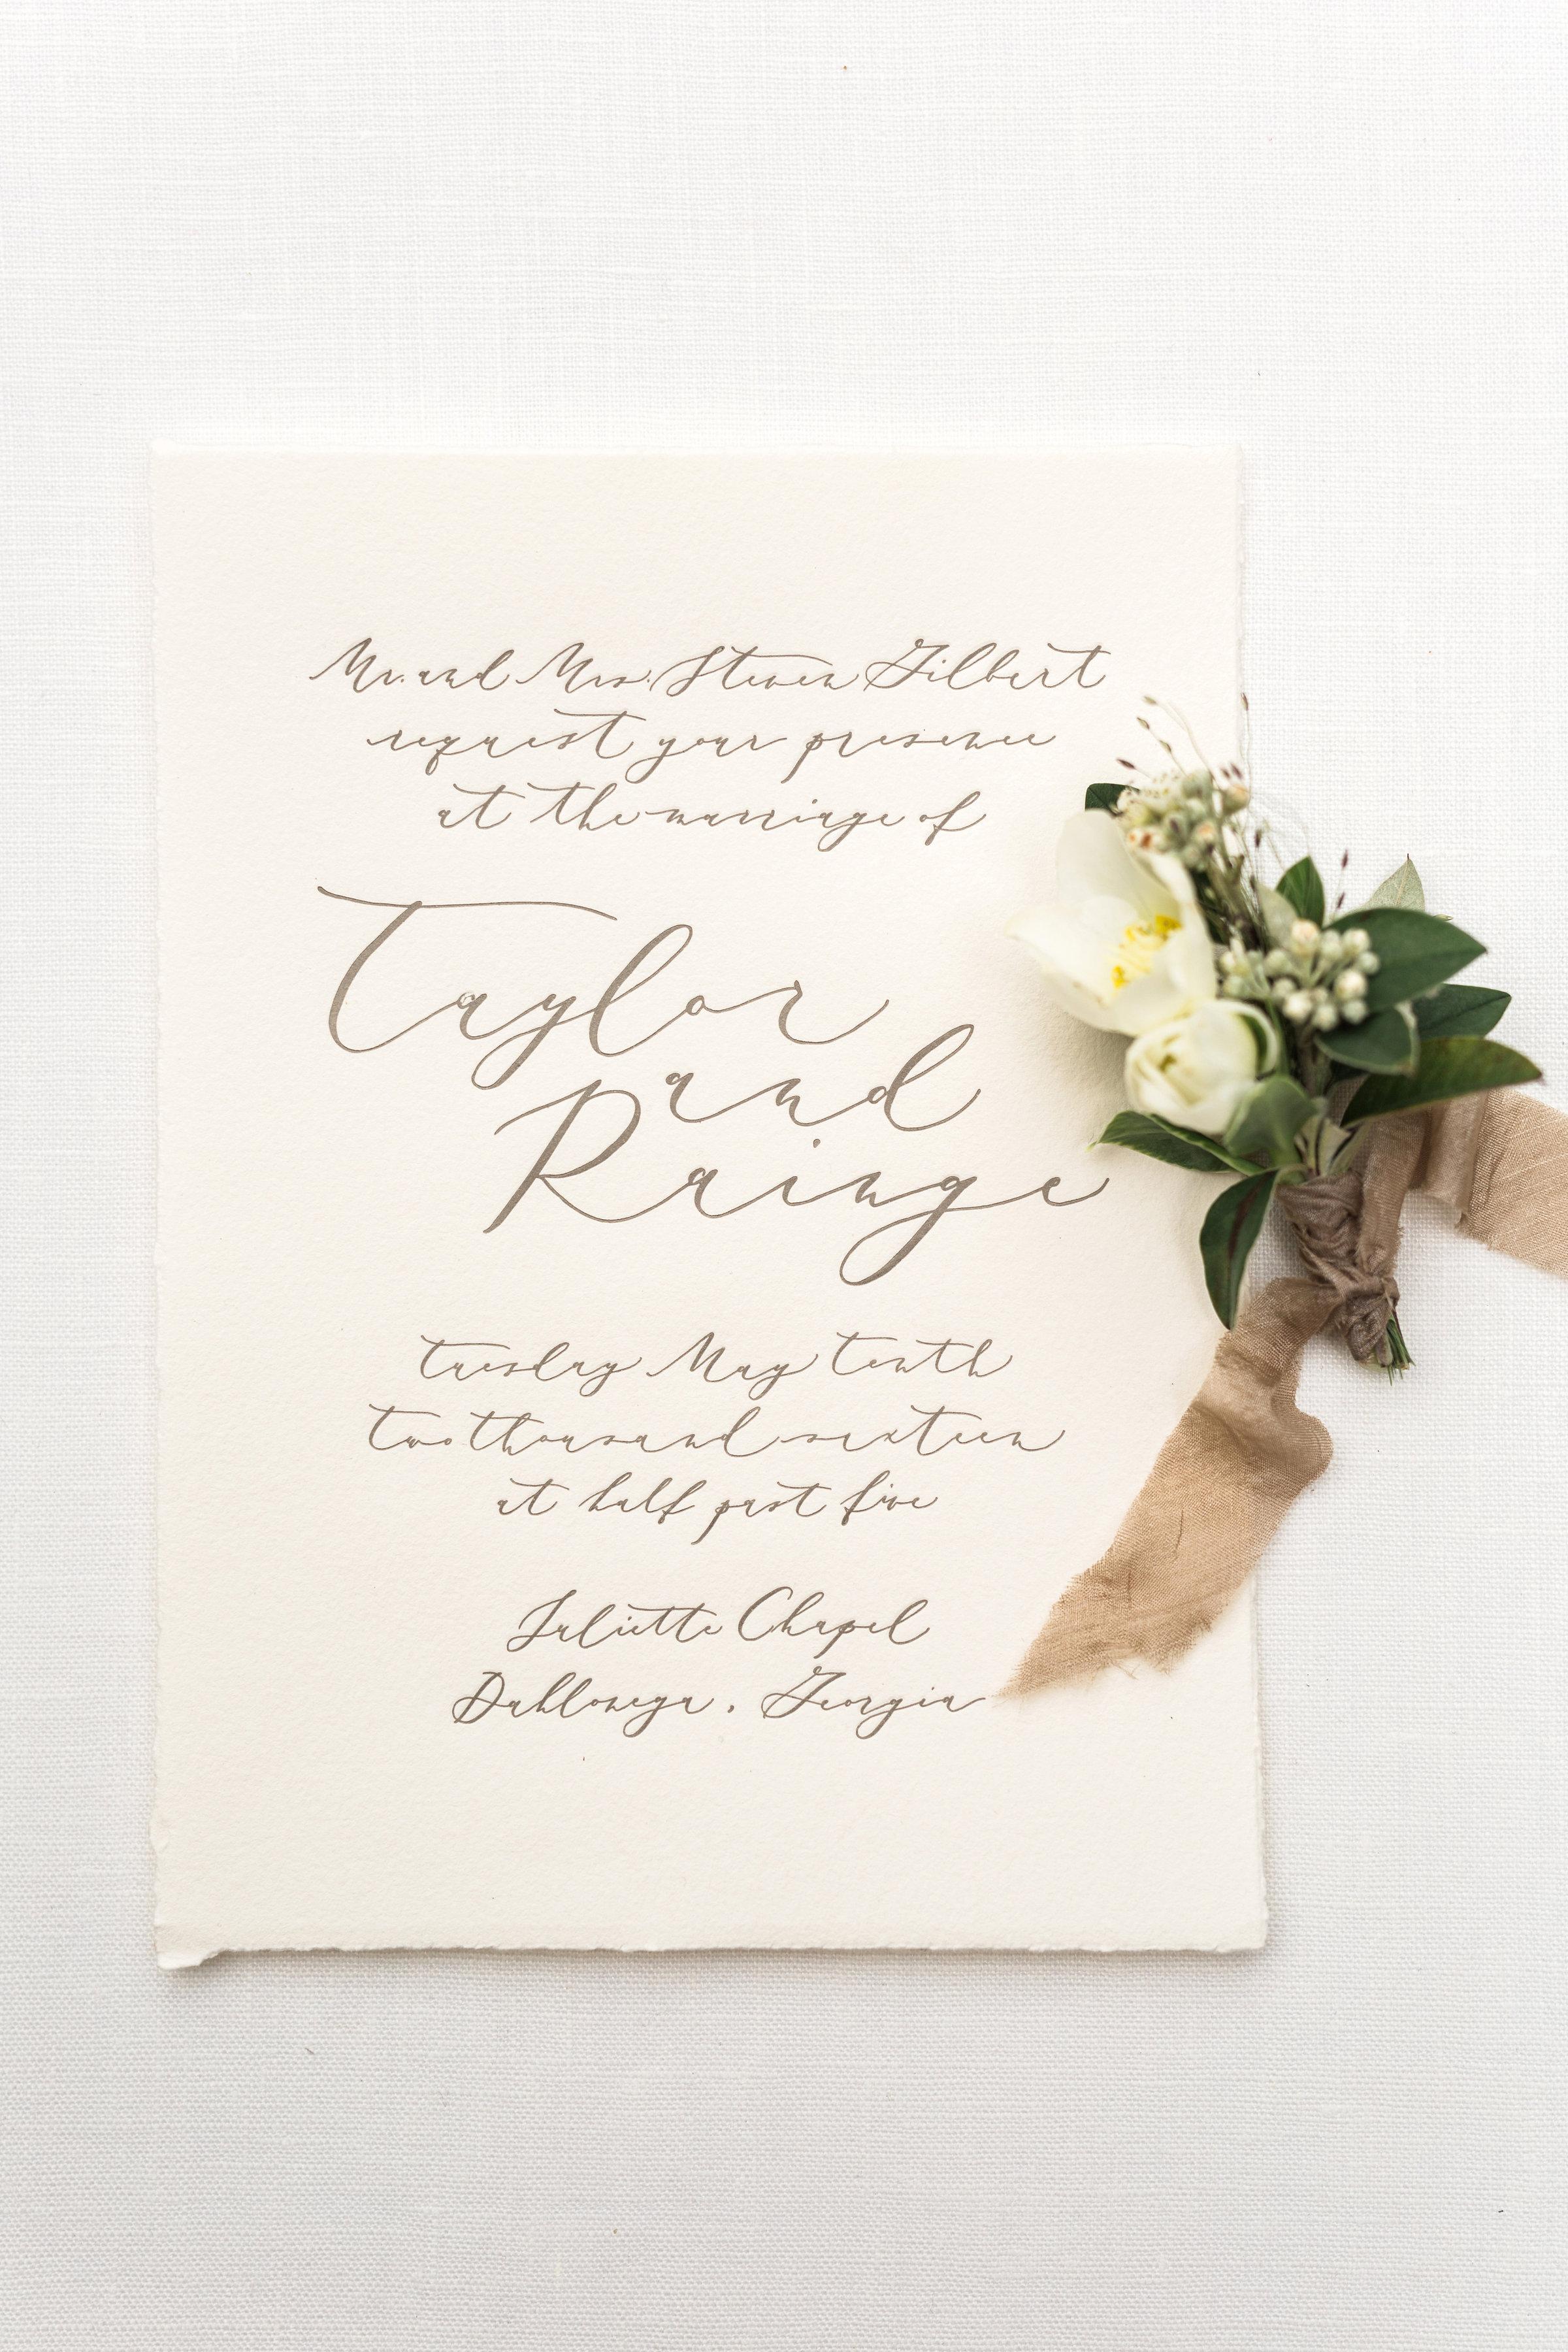 Mr. and Mrs. Steven Gilbert
request your presence
at the marriage of
Taylor
and
Rainge
tuesday May tenth
two thousand sixteen
at half past five
Juliette Chapel
Dahlonega, Georgia